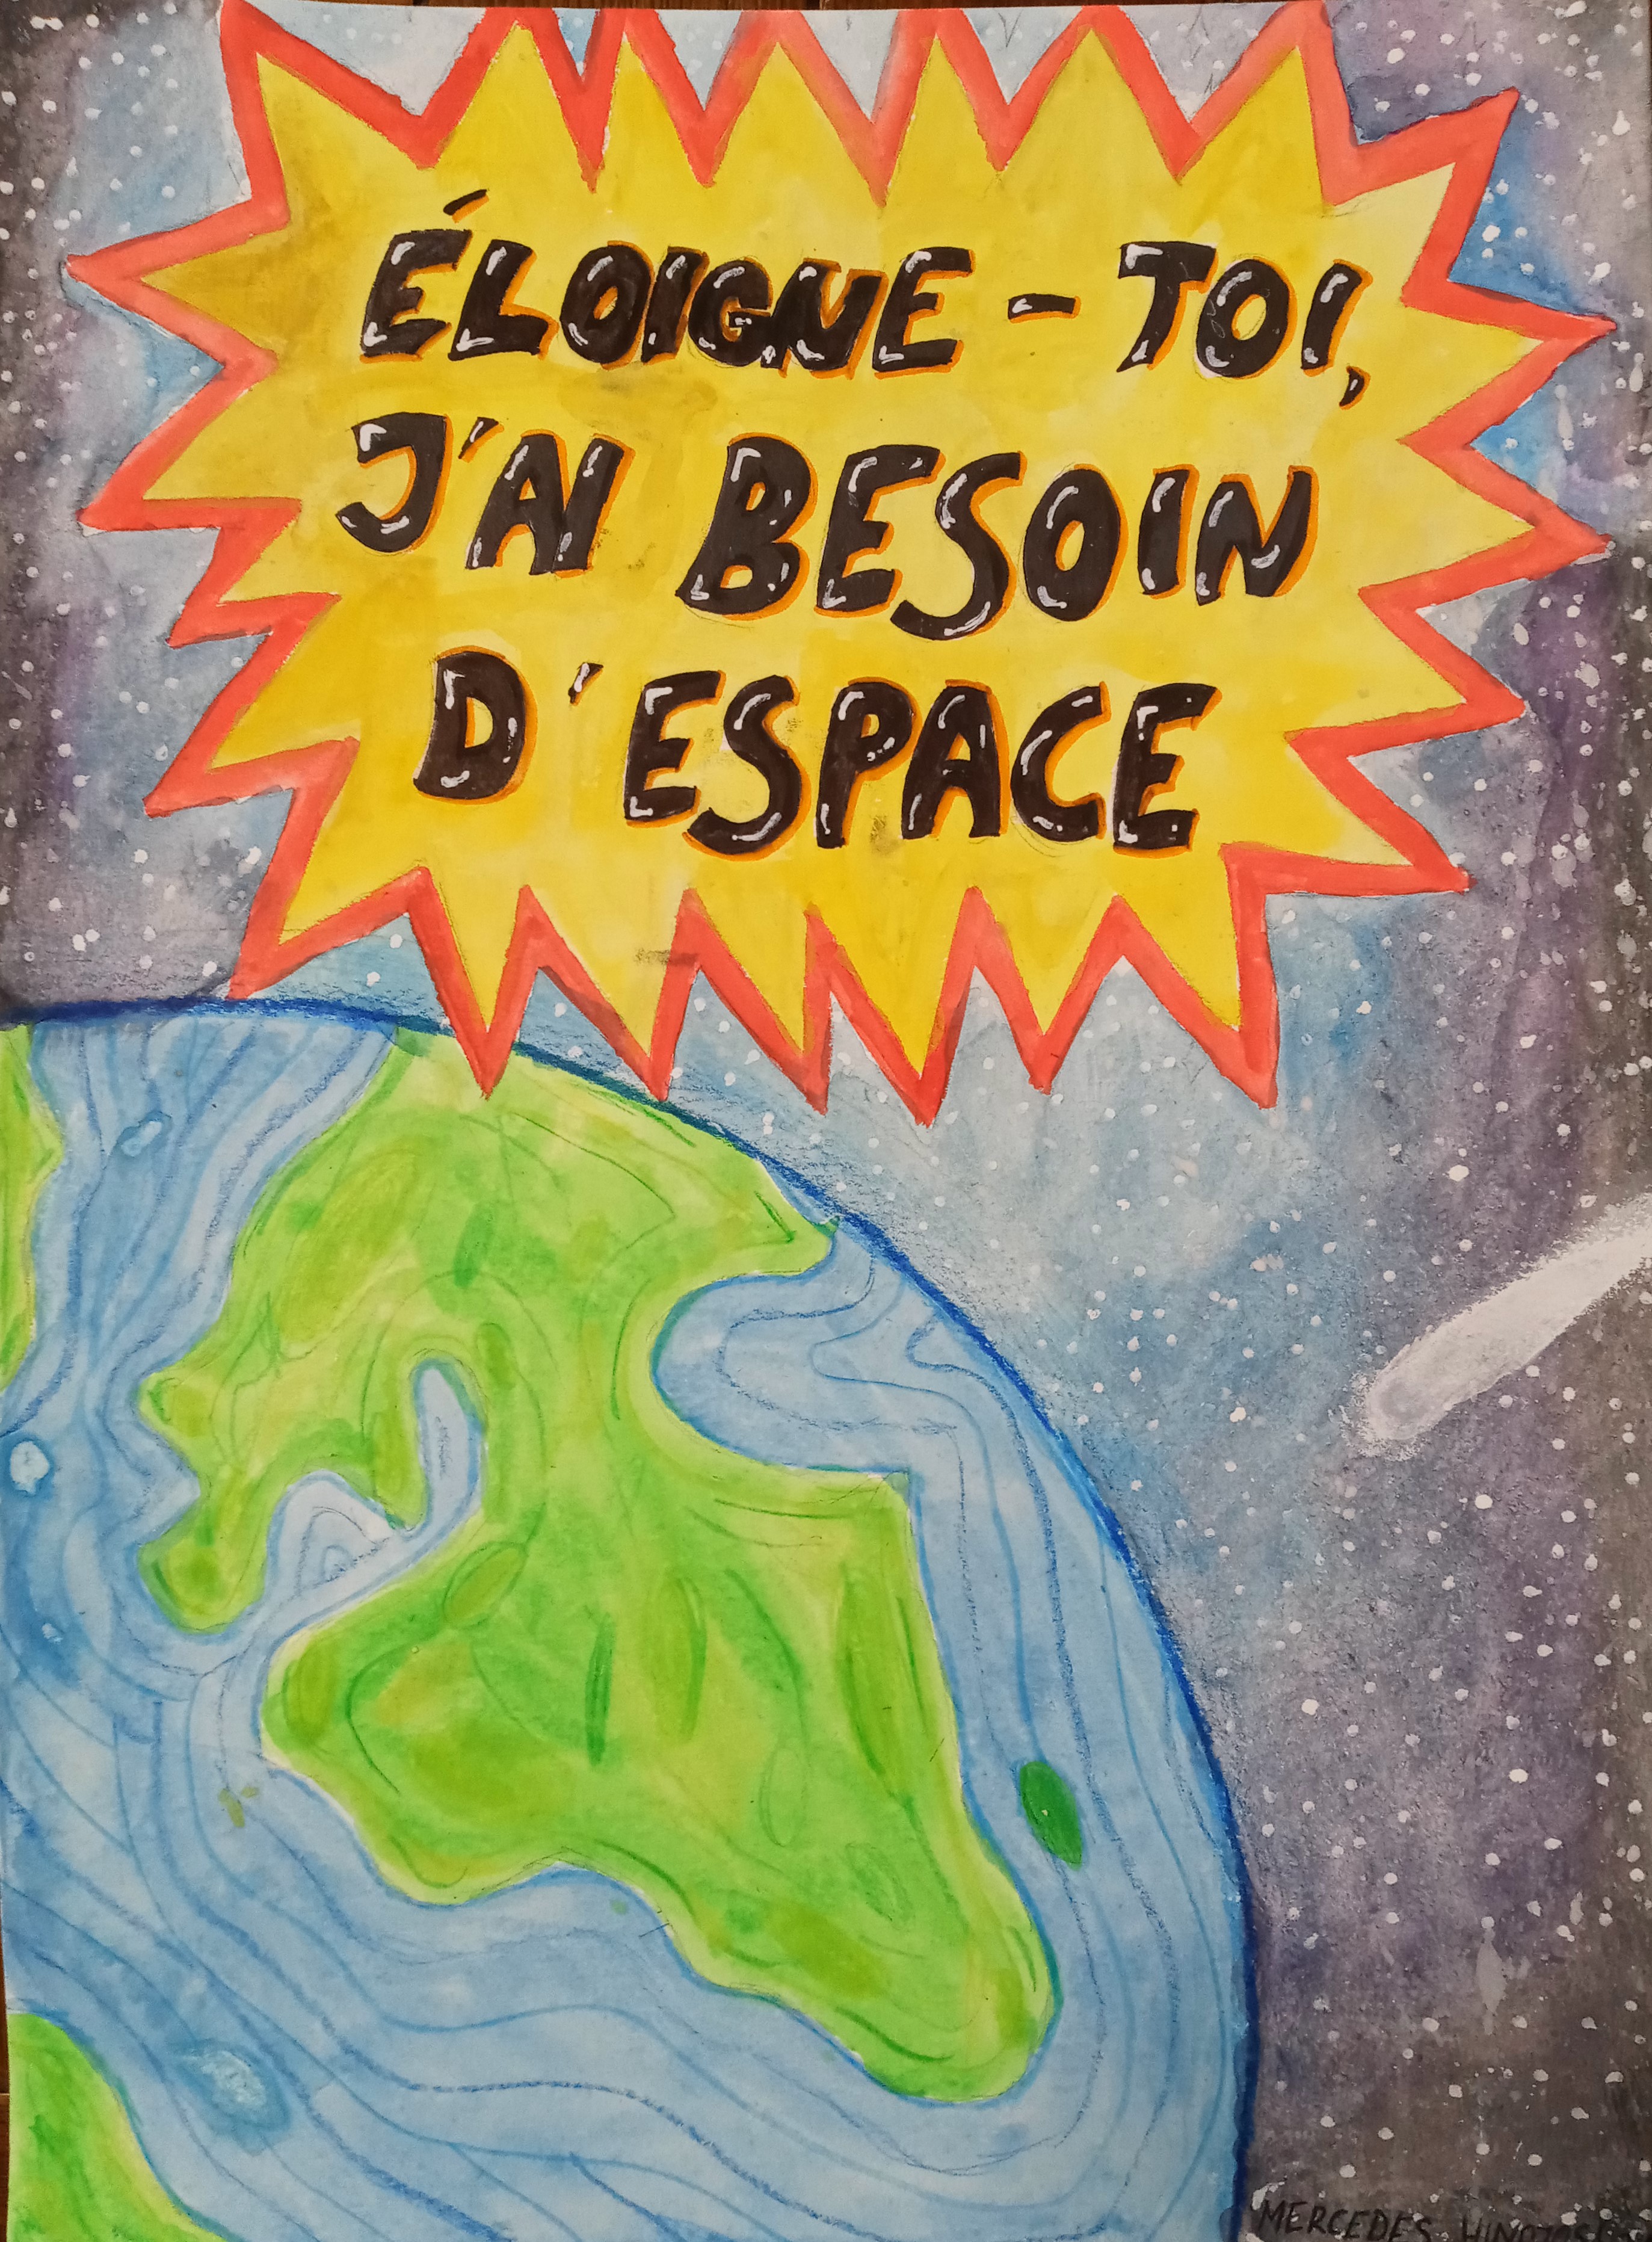 ÉLOIGNE-TOI,
J'AI BESOIN
D'ESPACE
MERCEDES